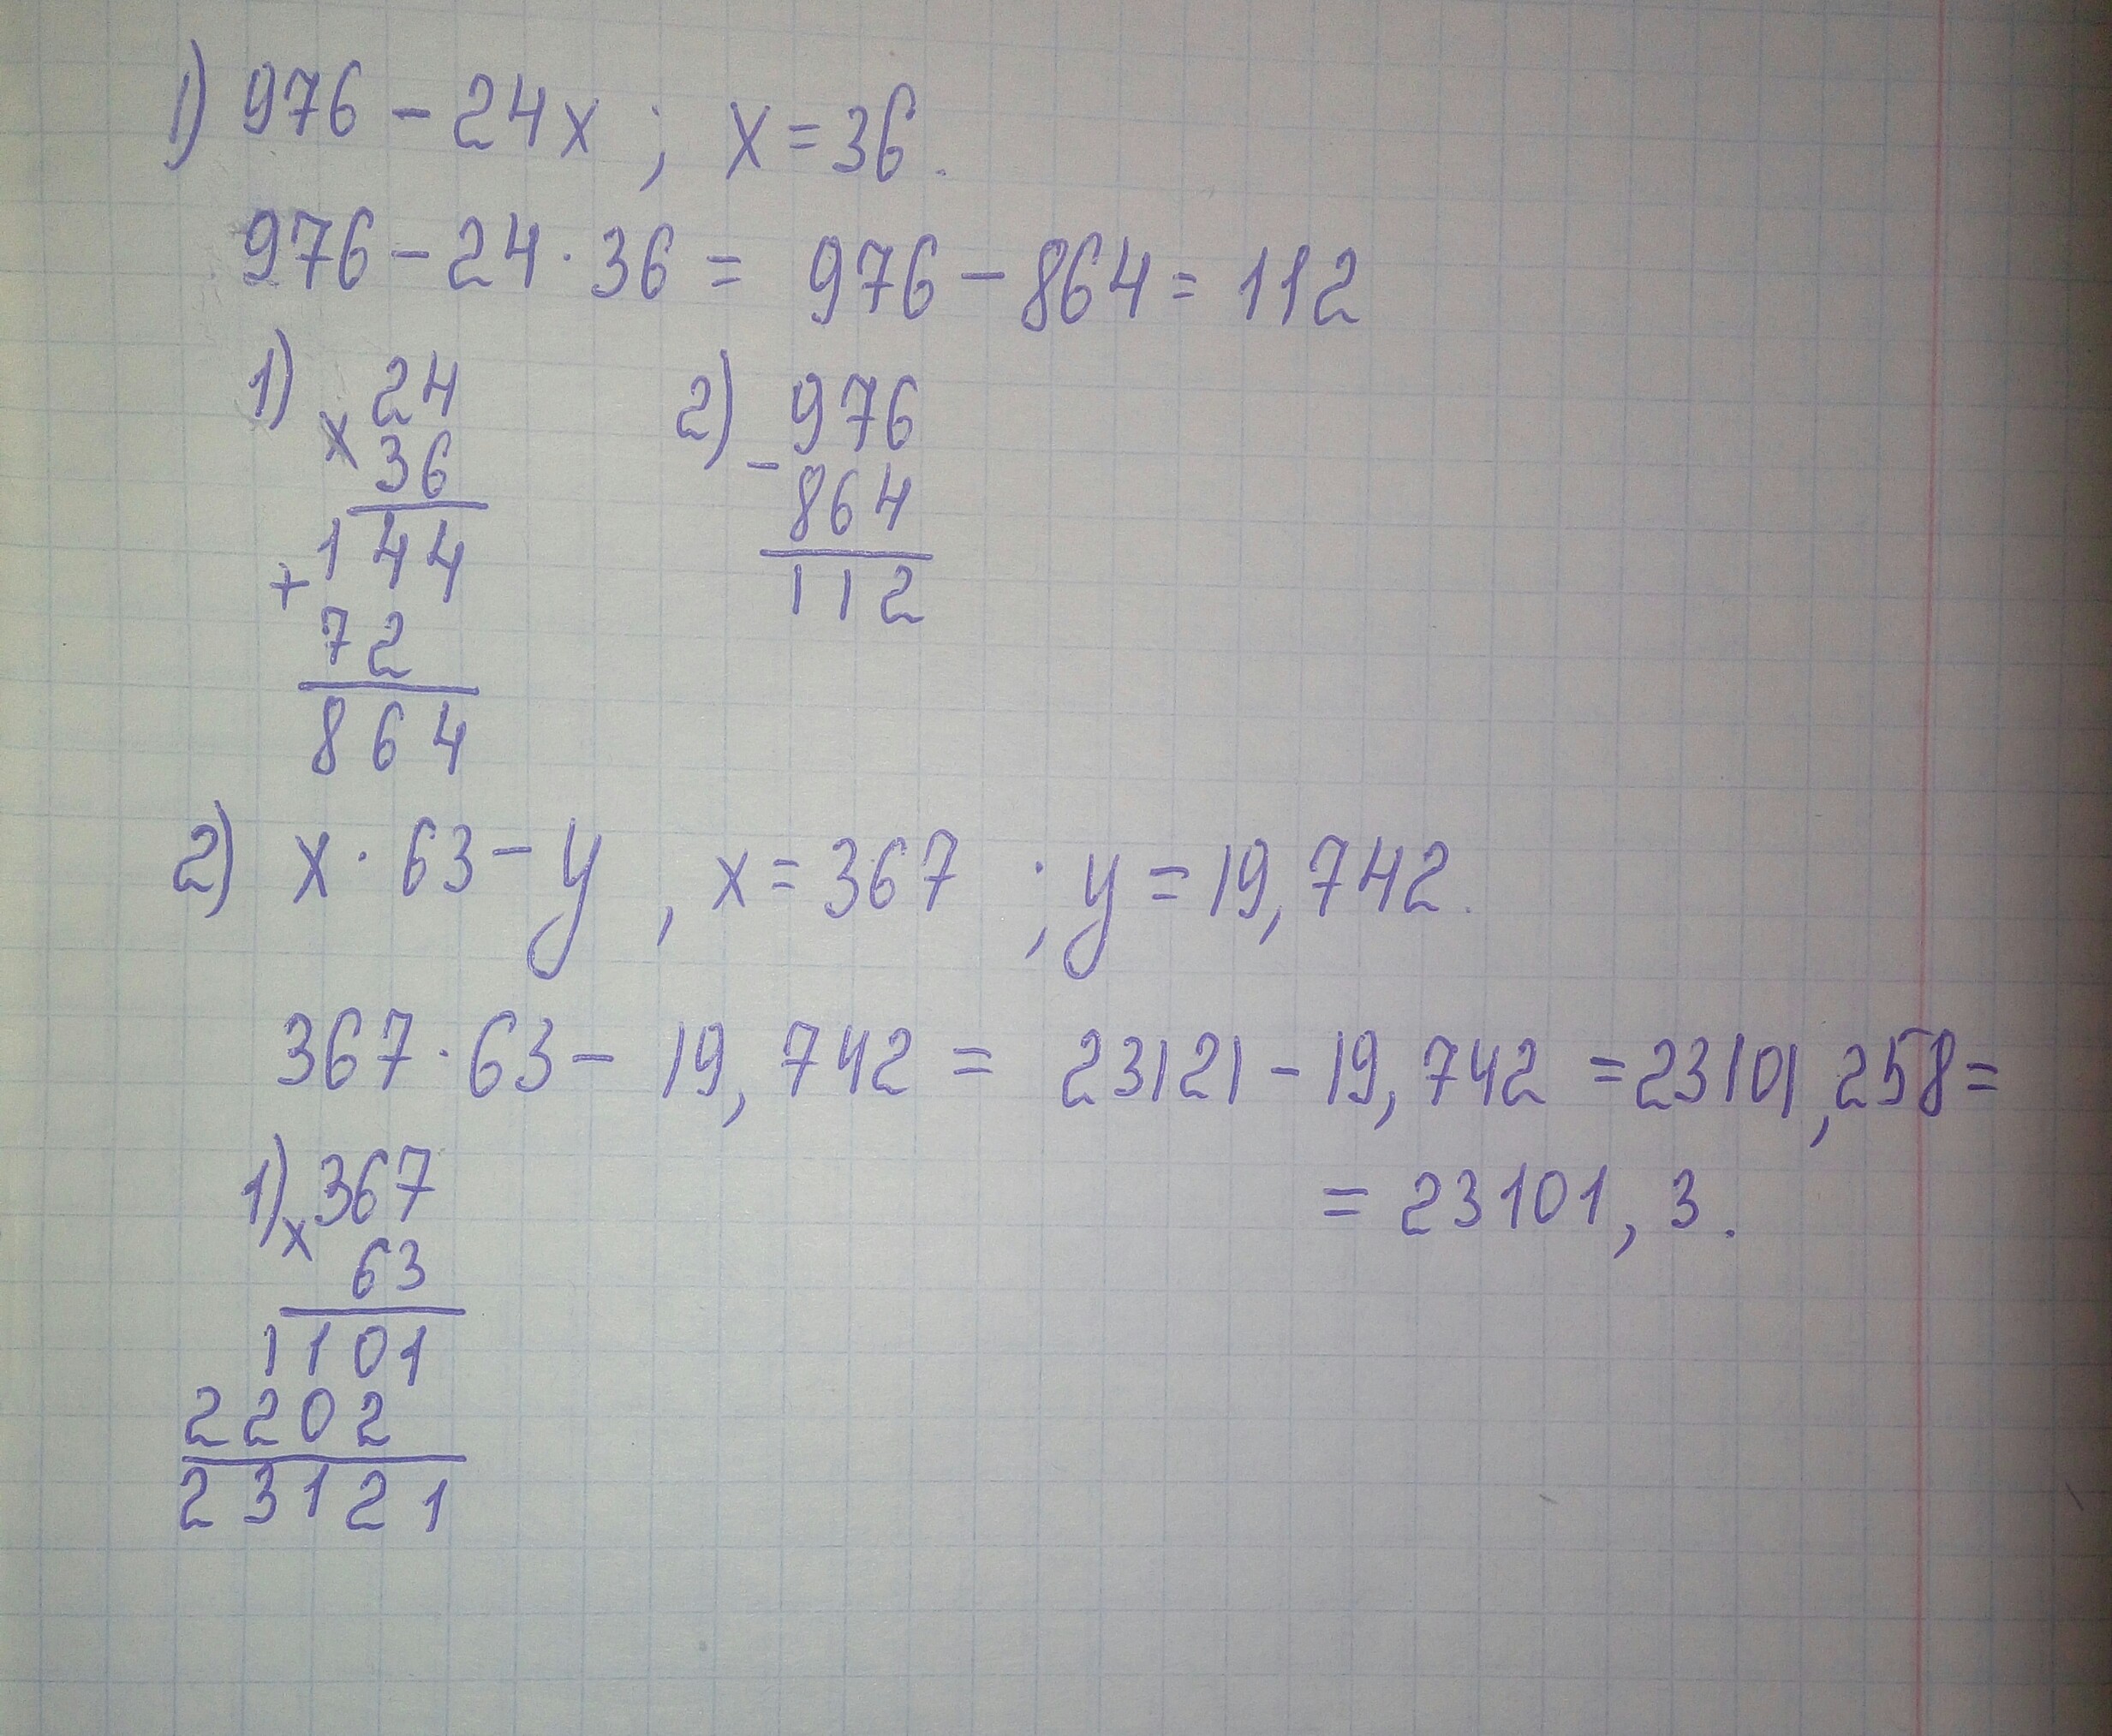 1) 976 - 24x ; x = 36.
976 - 24 · 36 = 976 - 864 = 112
1) x 24
36
+ 144
72
864
2) - 976
864
112
2) x · 63 - y , x = 367 ; y = 19,742.
367 · 63 - 19,742 = 23121 - 19,742 = 23101,258 =
= 23101,3.
1) x 367
63
1101
2202
23121